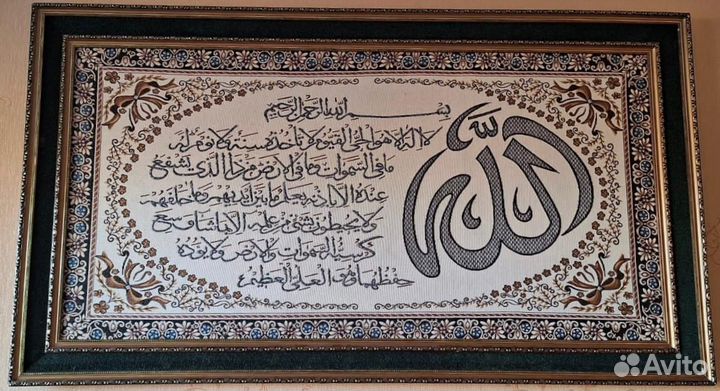 بسم الله الرحمن الرحيم
لا اله الا هو الحي القيوم لا تأخذه سنة ولا نوم له
ما في السموات وما في الارض من ذا الذي يشفع
عنده الا باذنه يعلم ما بين ايديهم وما خلفهم
ولا يحيطون بشئ من علمه الا بما شاء وسع
كرسيه السموات والارض ولا يؤده
حفظهما وهو العلي العظيم
الله
Avito